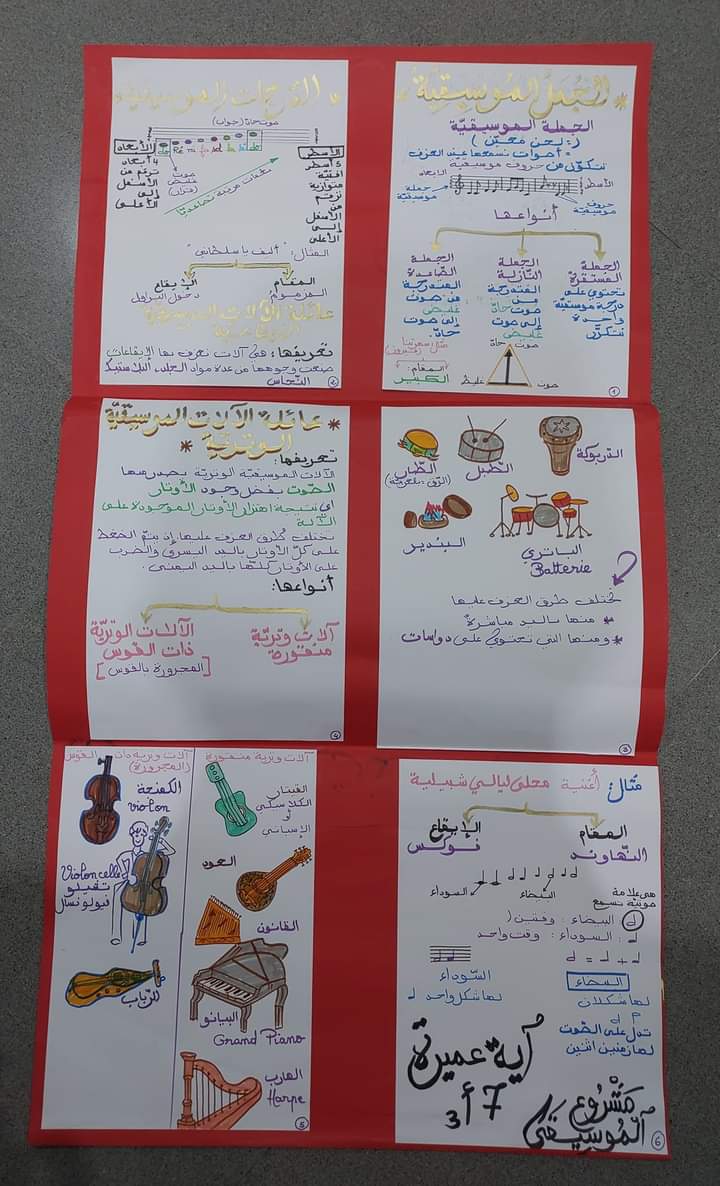 * الجمل الموسيقية *
الجملة الموسيقية
(: لحن معيّن )
= أصوات نسمعها عند العزف
تتكوّن من حروف موسيقية
الأبعاد
الأسطر
جملة موسيقية
حروف موسيقية
أنواعها
الجملة المستقرة
تحتوي على
درجة موسيقية
واحدة
تتكرّر
الجملة النازلة
المتدرجة
من
صوت حادّ
إلى صوت
غليظ
الجملة الصاعدة
المتدرجة
من صوت
غليظ
إلى صوت
حادّ
المقام:
الكبير
صوت حادّ
صوت غليظ
1
* الدرجات الموسيقية *
صوت حادّ (جواب)
الأبعاد
4 أبعاد
ترقم من
الأسفل
إلى
الأعلى
do Ré mi fa sol la si do
صوت غليظ (قرار)
الأسطر
5 أسطر
أفقية
متوازية
ترقم
من
الأسفل
إلى
الأعلى
المثال: "ألف يا سلطاني"
المقام
المزموم
الإيقاع
دخول البراول
عائلة الآلات الموسيقية
الإيقاعية
تعريفها: هي آلات تعزف بها الإيقاعات
صنعت وجوهها من عدة مواد الجلد، البلاستيك
النحاس
2
الدربوكة
الطبل
الطار
(الرّق بالمصرية)
البندير
الباتري
Batterie
تختلف طرق العزف عليها
* منها باليد مباشرة
* ومنها التي تحتوي على دواسات
3
* عائلة الآلات الموسيقية
الوترية *
تعريفها:
الآلات الموسيقية الوترية يصدر منها
الصّوت بفضل وجود الأوتار
أي نتيجة اهتزاز الأوتار الموجودة على
الآلة
تختلف طرق العزف عليها إذ يتمّ الضغط
على كلّ الأوتار باليد اليسرى والضرب
على الأوتار كلّها باليد اليمنى.
أنواعها:
آلات وتريّة
منقورة
الآلات الوتريّة
ذات القوس
[المجرورة بالقوس]
4
آلات وترية منقورة
القيتار
الكلاسيكي
أو
الإسباني
العود
القانون
البيانو
Grand Piano
الهارب
Harpe
آلات وترية ذات القوس
(المجرورة)
الكمنجة
violon
Violoncelle
تشيلو
فيولونسال
الرّباب
5
مثال: أغنية محلى ليالي شبيلية
المقام
النّهاوند
الإيقاع
فولس
السوداء
البيضاء
هي علامة
البيضاء: وقتين (
السوداء: وقت واحد
البيضاء
لها شكلان
تدل على الصّوت
لها زمنين اثنين
السّوداء
لها شكل واحد
آية عميرة
7 أ 3
مشروع
الموسيقى
6